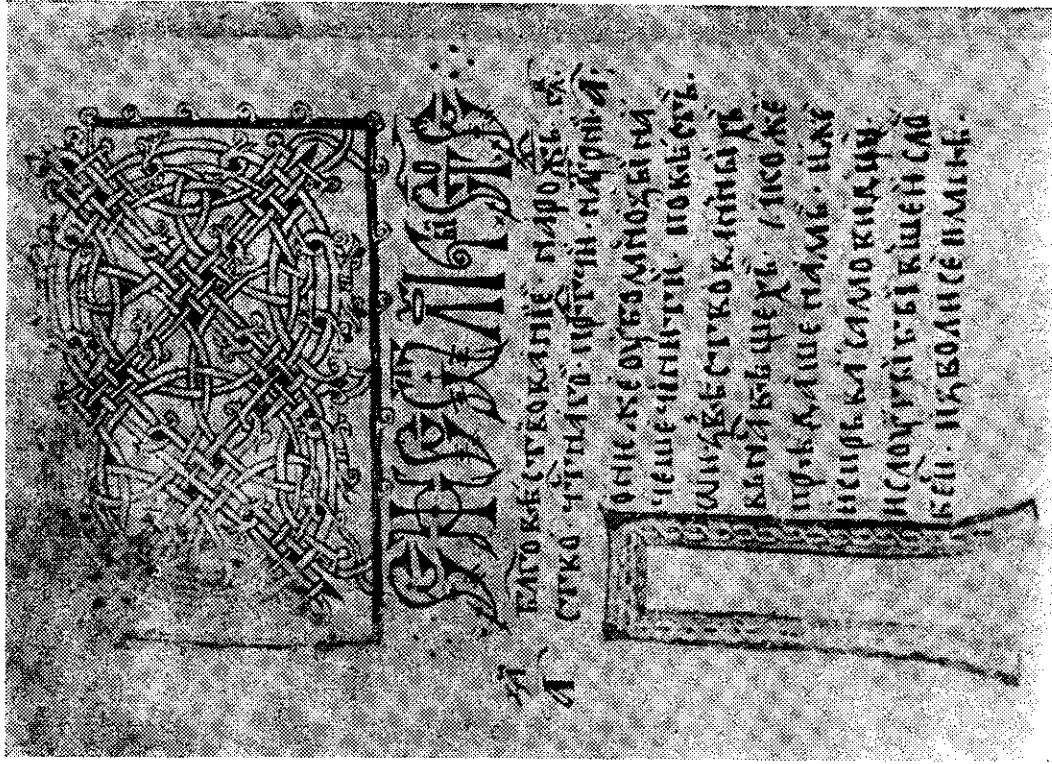 благовѣствованїе. нарожⷣь гл҃
ство. чⷭтнаго. прⷣтчи. начони. а҃.
Понеже оубомноѕїина
чешечинити. повѣсть.
ѡизвѣствованныхь
вьнасьвещехь. ꙗкоже
прѣдашенамь. иже
испрьвасамовидци.
ислоугыбывшеисло
веси. изволисеимнѣ.